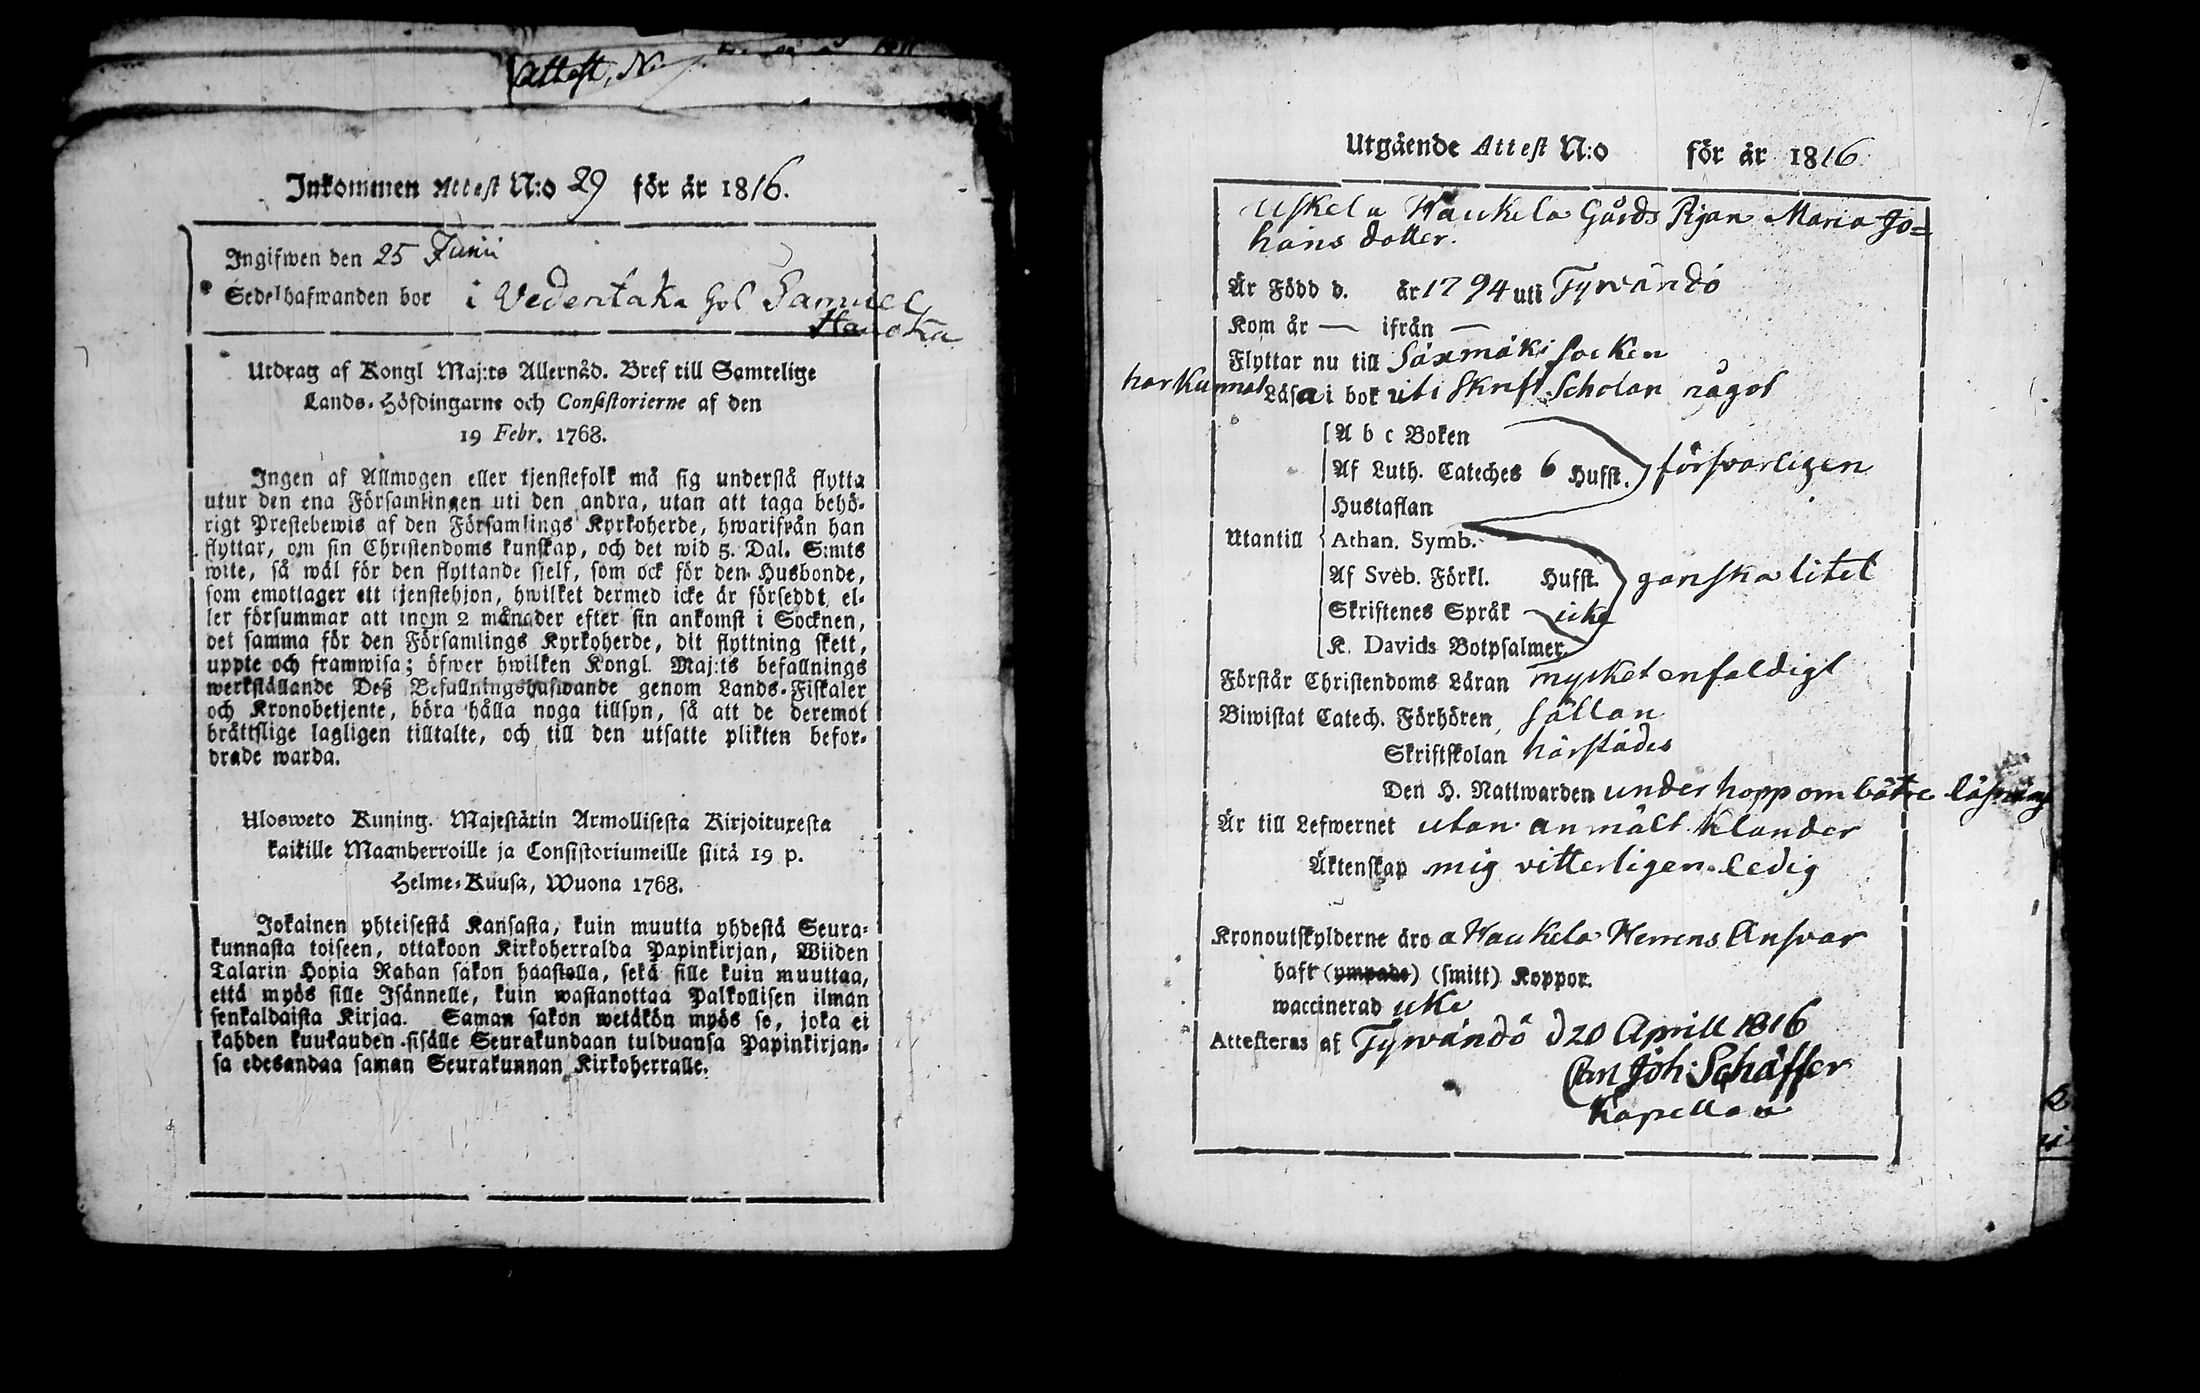 Attest, N:
Inkommen Attest N:o 29 för år 1816.
Ingifwen den 25 Junii
Sedelhafwanden bor i Vedentaka hol Samuel
Utdrag af Kongl Maj:ts Allernåd. Bref till Samtelige
Lands-Höfdingarne och Consistorierne af den
19 Febr. 1768.
Ingen af Allmogen eller tjenstefolk må sig understå flytta
utur den ena Församlingen uti den andra, utan att taga behö-
rigt Prestebewis af den Församlings Kyrkoherde, hwarifrån han
flyttar, om sin Christendoms kunskap, och det wid 5. Dal. S:mts
wite, så wäl för den flyttande sjelf, som ock för den Husbonde,
som emottager ett tjenstehjon, hwilket dermed icke är försedt, el-
ler försummar att inom 2 månader efter sin ankomst i Socknen,
det samma för den Församlings Kyrkoherde, dit flyttning skett,
uppte och framwisa; öfwer hwilken Kongl. Maj:ts befallnings
werkställande Deß Befallningshafwande genom Lands-Fiskaler
och Kronobetjente, böra hålla noga tillsyn, så att de deremot
bråttslige lagligen tilltalte, och till den utsatte plikten befor-
drade warda.
Ulosweto Kuning. Majestätin Armollisesta Kirjoituxesta
kaikille Maanherroille ja Consistoriumeille siitä 19 p.
Helme-Kuusa, Wuona 1768.
Jokainen yhteisestä Kansasta, kuin muutta yhdestä Seura-
kunnasta toiseen, ottakoon Kirkoherralda Papinkirjan, Wiiden
Talarin Hopia Rahan sakon haastolla, sekä sille kuin muuttaa,
että myös sille Isännelle, kuin wastanottaa Palkollisen ilman
senkaldaista Kirjaa. Saman sakon wetäkön myös se, joka ei
kahden kuukauden sisälle Seurakundaan tulduansa Papinkirjan-
sa edesandaa saman Seurakunnan Kirkoherralle.
Utgående Attest N:o för år 1816
Uskela Haukela Gårds Pigan Maria Jo=
hans dotter.
Är Född d. år 1794 uti Tyrwändö
Kom år — ifrån —
Flyttar nu till Säxmäki Socken
har kunnat Läsa i bok uti Skrift Scholan något
A b c Boken
Af Luth. Cateches 6 Hufst. försvarligen
Hustaflan
Utantill Athan. Symb.
Af Sveb. Förkl. Hufst. ganska litet
Skriftenes Språk icke
K. Davids Botpsalmer
Förstår Christendoms Läran mycket enfaldigt
Biwistat Catech. Förhören sällan
Skriftskolan härstädes
Den H. Nattwarden under hopp om bättre läsning
Är till Lefwernet utan anmält klander
Äktenskap mig vitterligen ledig
Kronoutskylderne äro a Haukela Herrens Ansvar
haft (ympade) (smitt) Koppor.
waccinerad icke
Attesteras af Tyrwändö d 20 Aprill 1816
Carl Joh: Schäffer
Kapellan